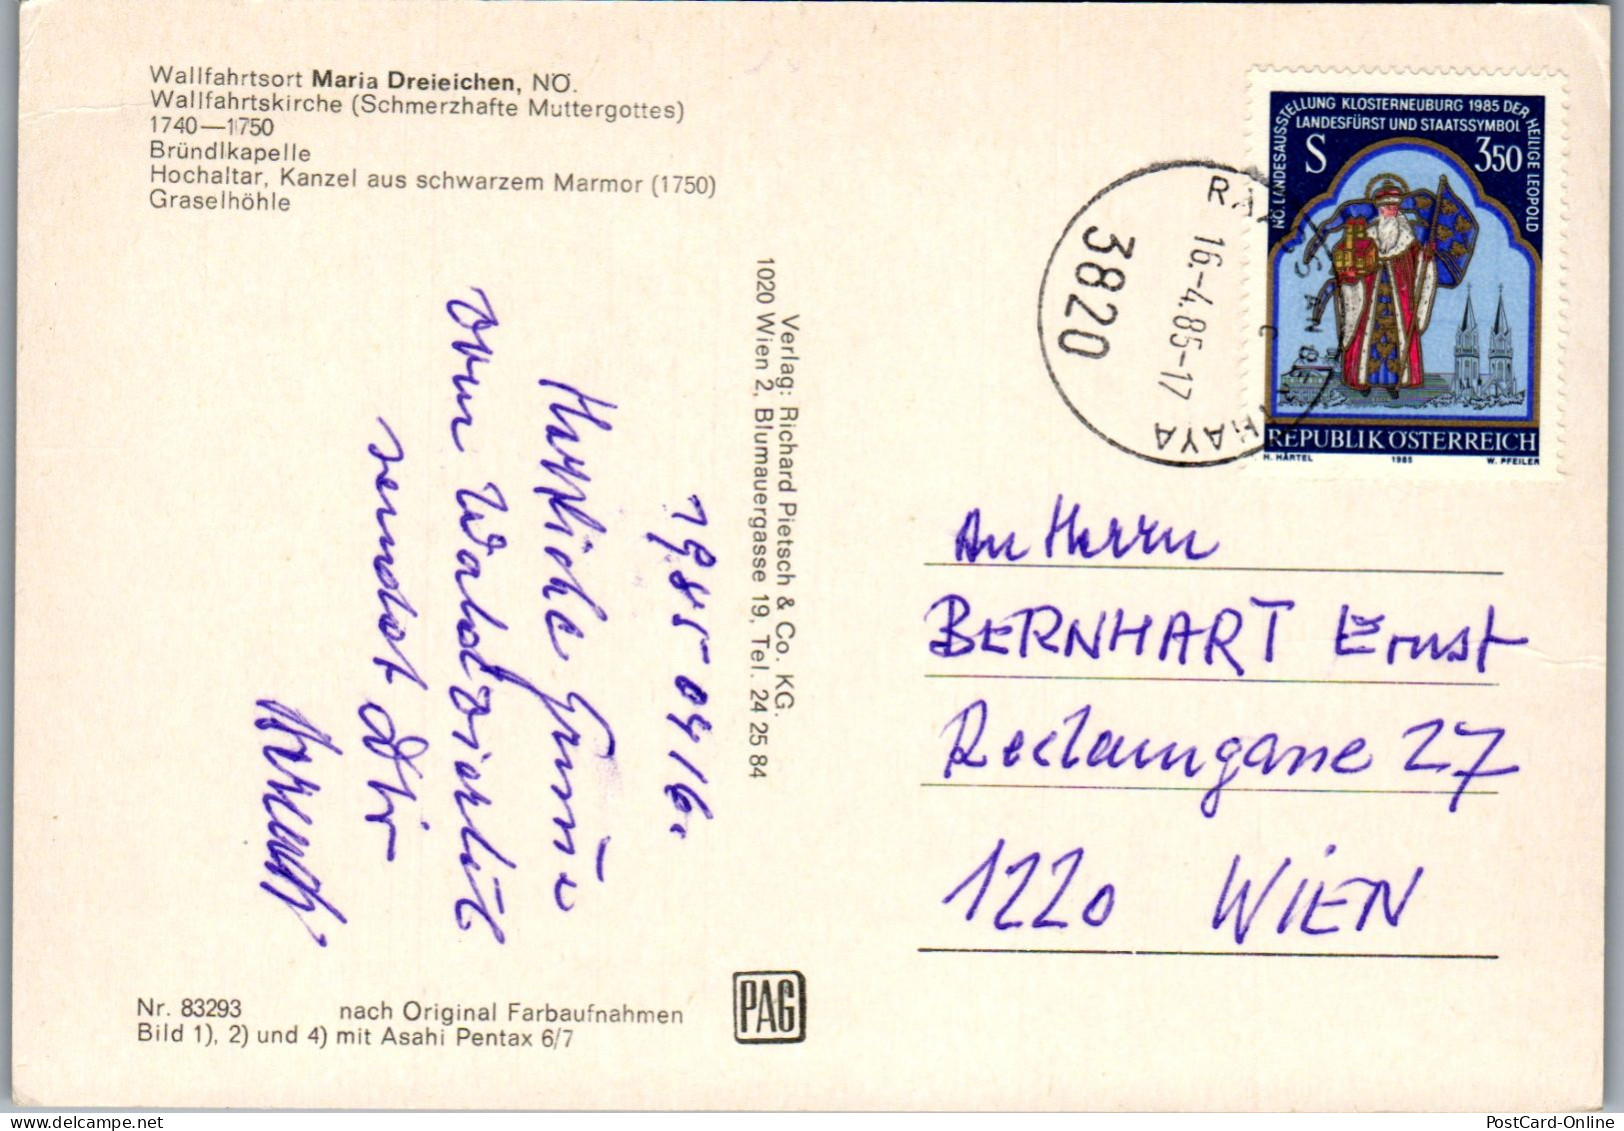 Wallfahrtsort Maria Dreieichen, NÖ.
Wallfahrtskirche (Schmerzhafte Muttergottes)
1740—1750
Bründlkapelle
Hochaltar, Kanzel aus schwarzem Marmor (1750)
Graselhöhle
NÖ. LANDESAUSSTELLUNG KLOSTERNEUBURG 1985 DER HEILIGE LEOPOLD
LANDESFÜRST UND STAATSSYMBOL
S 350
REPUBLIK ÖSTERREICH
H. HÄRTEL 1985 W. PFEILER
RAABS AN DER THAYA
16.-4.85-17 C
3820
Verlag: Richard Pietsch & Co. KG.
1020 Wien 2, Blumauergasse 19, Tel. 24 25 84
1985 04 16.
Herzliche Grüße
vom Waldviertel
sendet Dir
An Herrn
BERNHART Ernst
Reclamgasse 27
1220 WIEN
Nr. 83293 nach Original Farbaufnahmen
Bild 1), 2) und 4) mit Asahi Pentax 6/7
PAG
PostCard-Online